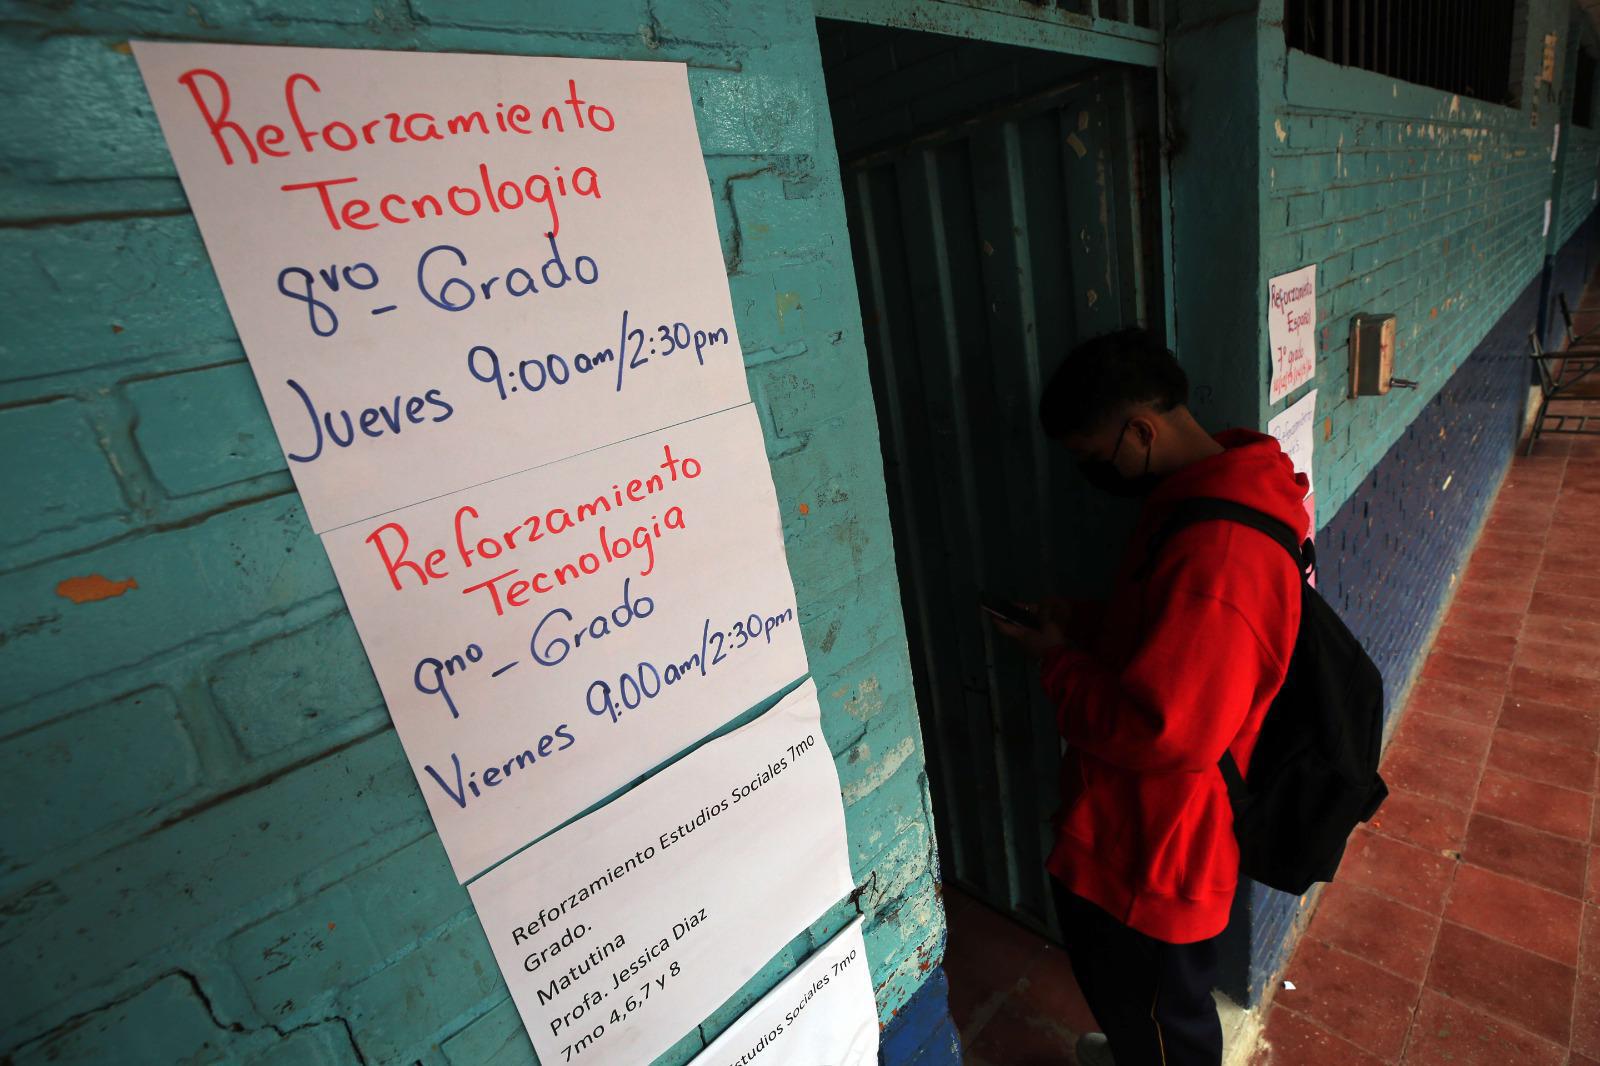 Reforzamiento
Tecnologia
8vo - Grado
Jueves 9:00am/2:30pm
Reforzamiento
Tecnologia
9no - Grado
Viernes 9:00am/2:30pm
Reforzamiento Estudios Sociales 7mo
Grado.
Matutina
Profa. Jessica Diaz
7mo 4,6,7 y 8
studios Sociales 7mo
Reforzamiento
Español
7º grado